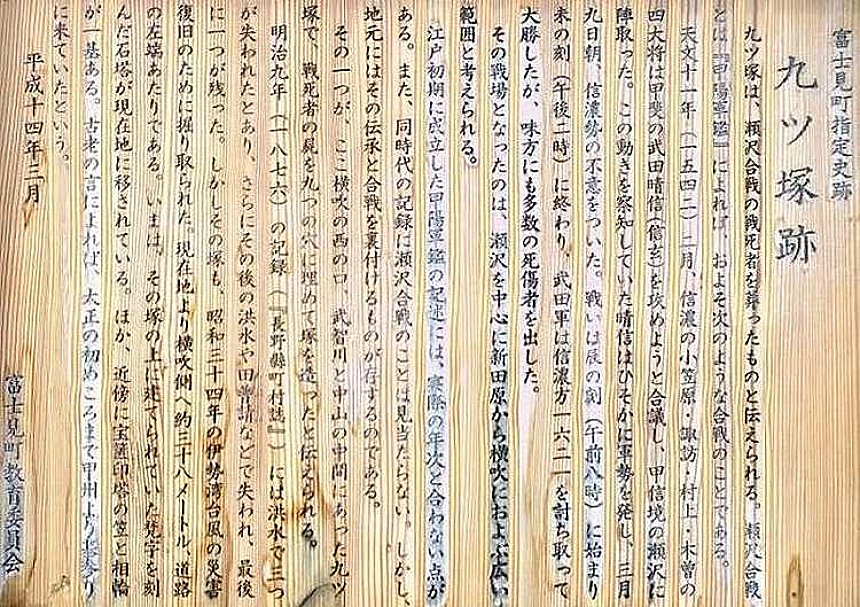 富士見町指定史跡
九ツ塚跡
九ツ塚は、瀬沢合戦の戦死者を葬ったものと伝えられる。瀬沢合戦
とは『甲陽軍鑑』によれば、およそ次のような合戦のことである。
天文十一年（一五四二）二月、信濃の小笠原・諏訪・村上・木曽の
四大将は甲斐の武田晴信（信玄）を攻めようと合議し、甲信境の瀬沢に
陣取った。この動きを察知していた晴信はひそかに軍勢を発し、三月
九日朝、信濃勢の不意をついた。戦いは辰の刻（午前八時）に始まり
未の刻（午後二時）に終わり、武田軍は信濃方一六二一を討ち取って
大勝したが、味方にも多数の死傷者を出した。
その戦場となったのは、瀬沢を中心に新田原から横吹におよぶ広い
範囲と考えられる。
江戸初期に成立した甲陽軍鑑の記述には、実際の年次と合わない点が
ある。また、同時代の記録に瀬沢合戦のことは見当たらない。しかし、
地元にはその伝承と合戦を裏付けるものが存するのである。
その一つが、ここ横吹の西の口、武智川と中山の中間にあった九ツ
塚で、戦死者の屍を九つの穴に埋めて塚を造ったと伝えられる。
明治九年（一八七六）の記録（『長野縣町村誌』）には洪水で三つ
が失われたとあり、さらにその後の洪水や田普請などで失われ、最後
に一つが残った。しかしその塚も、昭和三十四年の伊勢湾台風の災害
復旧のために掘り取られた。現在地より横吹側へ約三十八メートル、道路
の左端あたりである。いまは、その塚の上に建てられていた梵字を刻
んだ石塔が現在地に移されている。ほか、近傍に宝篋印塔の笠と相輪
が一基ある。古老の言によれば、大正の初めころまで甲州より墓参り
に来ていたという。
平成十四年三月
富士見町教育委員会